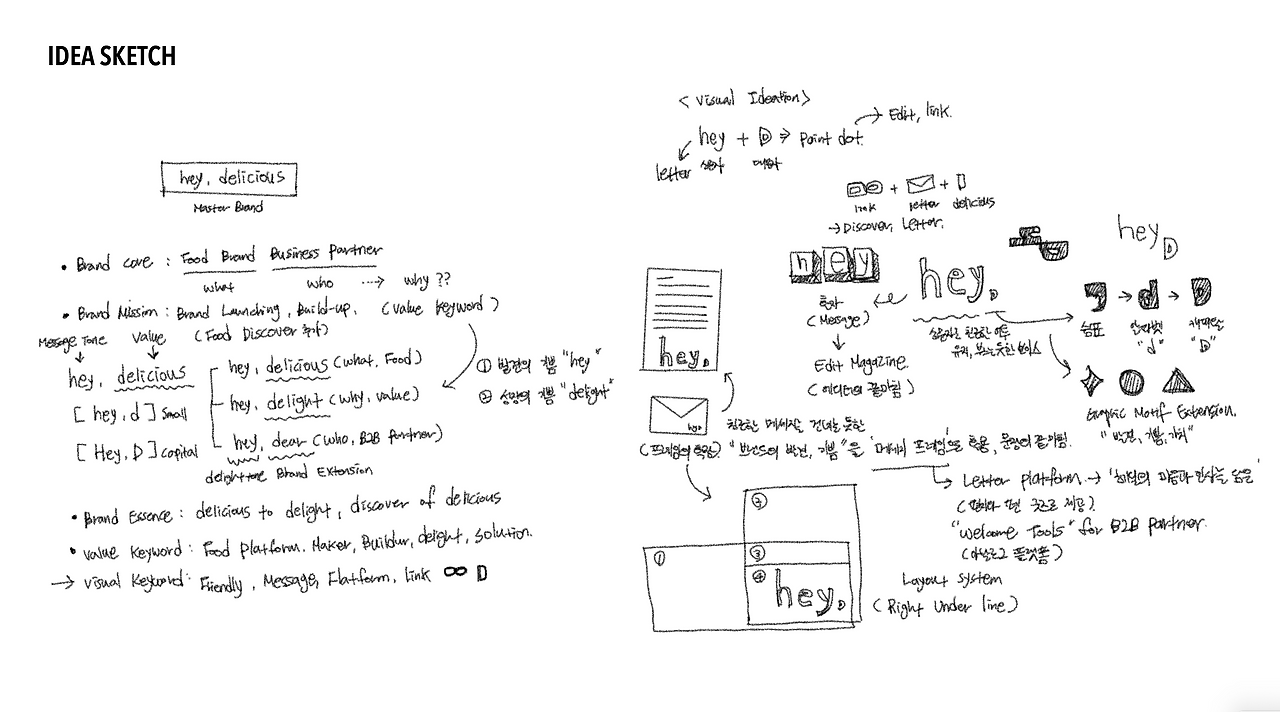 IDEA SKETCH
hey, delicious
Master Brand
• Brand core : Food Brand Business Partner
what who ···→ why ??
• Brand Mission : Brand Launching, Build-up. (Value keyword)
Message Tone Value (Food Discover 추가)
hey, delicious
[hey, d] small
[Hey, D] capital
hey, delicious (what, Food)
hey, delight (why, value)
hey, dear (who, B2B Partner)
delightone Brand Extension
① 발견의 기쁨 "hey"
② 성장의 기쁨 "delight"
• Brand Essence : delicious to delight, discover of delicious
• Value keyword : Food platform. Maker, Buildur, delight, solution.
→ Visual Keyword : Friendly, Message, Flatform, link ∞ D
< Visual Ideation >
hey + D ⇒ Point dot. → Edit, link.
letter
link + letter + delicious
→ Discover, Letter.
hey
(Message)
Edit Magazine.
(에디터의 끝마침)
hey.D
hey D
쉼표 → 알파벳 "d" → "D"
Graphic Motif Extension.
"발견, 기쁨, 가치"
hey.D
hey.D
친근한 메세지를 건네는 듯한
"브랜드의 발견, 기쁨"을 '메세지 프레임'으로 활용, 문장의 끝마침.
Letter platform. →
"Welcome Tools" for B2B Partner.
(아날로그 플랫폼)
①
②
③
④ hey.D
Layout system
(Right Under line)